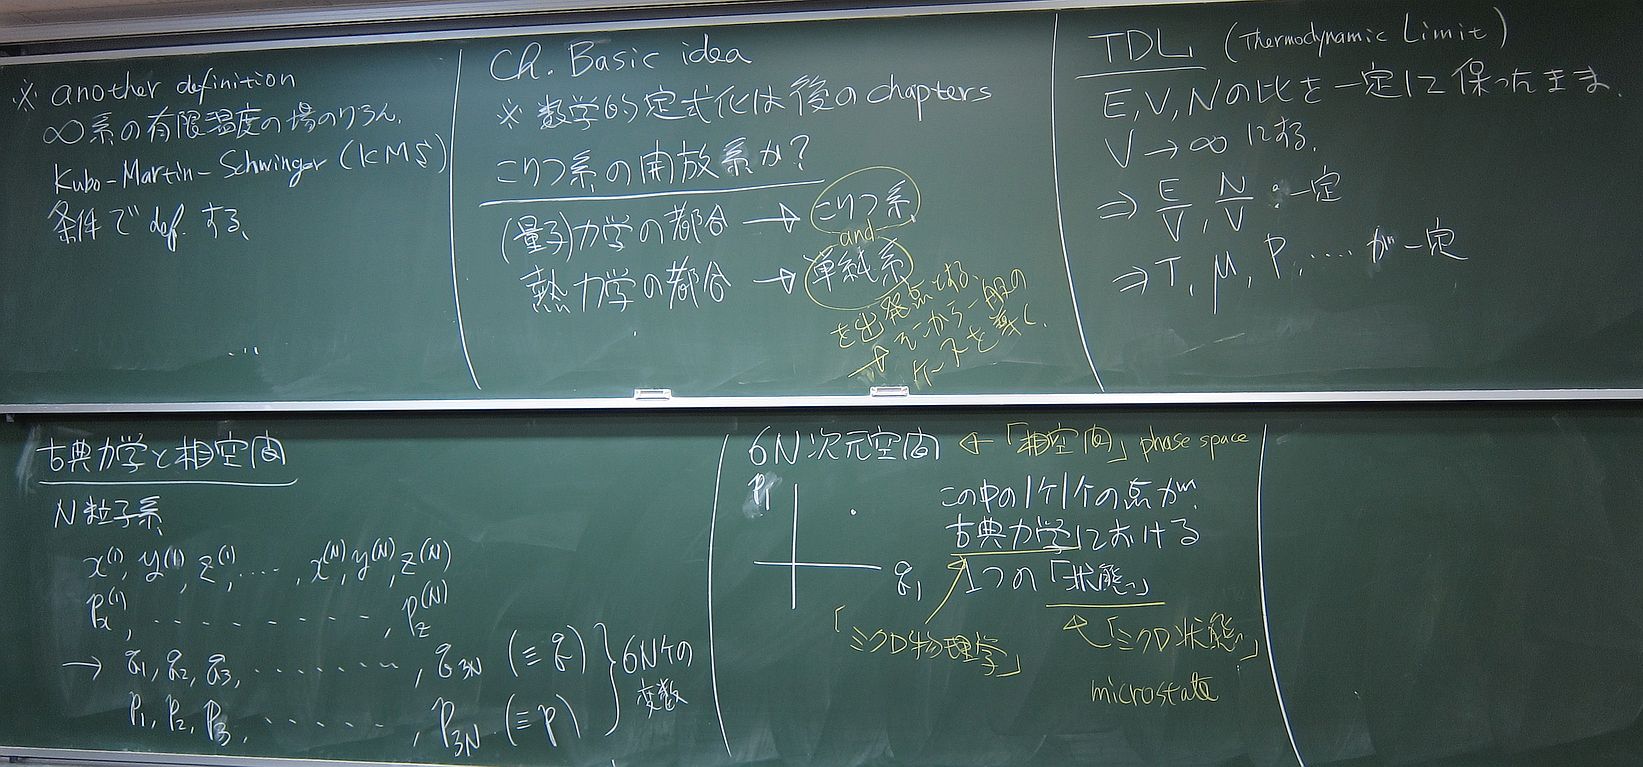 ※ another definition
∞系の有限温度の場のりろん.
Kubo-Martin-Schwinger (KMS)
条件で def. する.
...
Ch. Basic idea
※ 数学的定式化は後の chapters
こりつ系の開放系か?
(量子)力学の都合 → こりつ系
and
熱力学の都合 → 単純系
を出発点とする.
→ そこから一般の
ケースを導く.
TDL (Thermodynamic Limit)
E, V, N の比を一定に保ったまま.
V → ∞ にする.
⇒ E/V, N/V : 一定
⇒ T, μ, P, ..... が一定
古典力学と相空間
N粒子系
x⁽¹⁾, y⁽¹⁾, z⁽¹⁾, ...., x⁽ᴺ⁾, y⁽ᴺ⁾, z⁽ᴺ⁾
pₓ⁽¹⁾, .........., p_z⁽ᴺ⁾
→ q₁, q₂, q₃, ........, q_3N (≡ q)
p₁, p₂, p₃, ........, p_3N (≡ p)
} 6Nケの
変数
6N次元空間 ← 「相空間」 phase space
p₁
q₁
この中の1ケ1ケの点が
古典力学における
1つの「状態」
「ミクロ物理学」
「ミクロ状態」
microstate